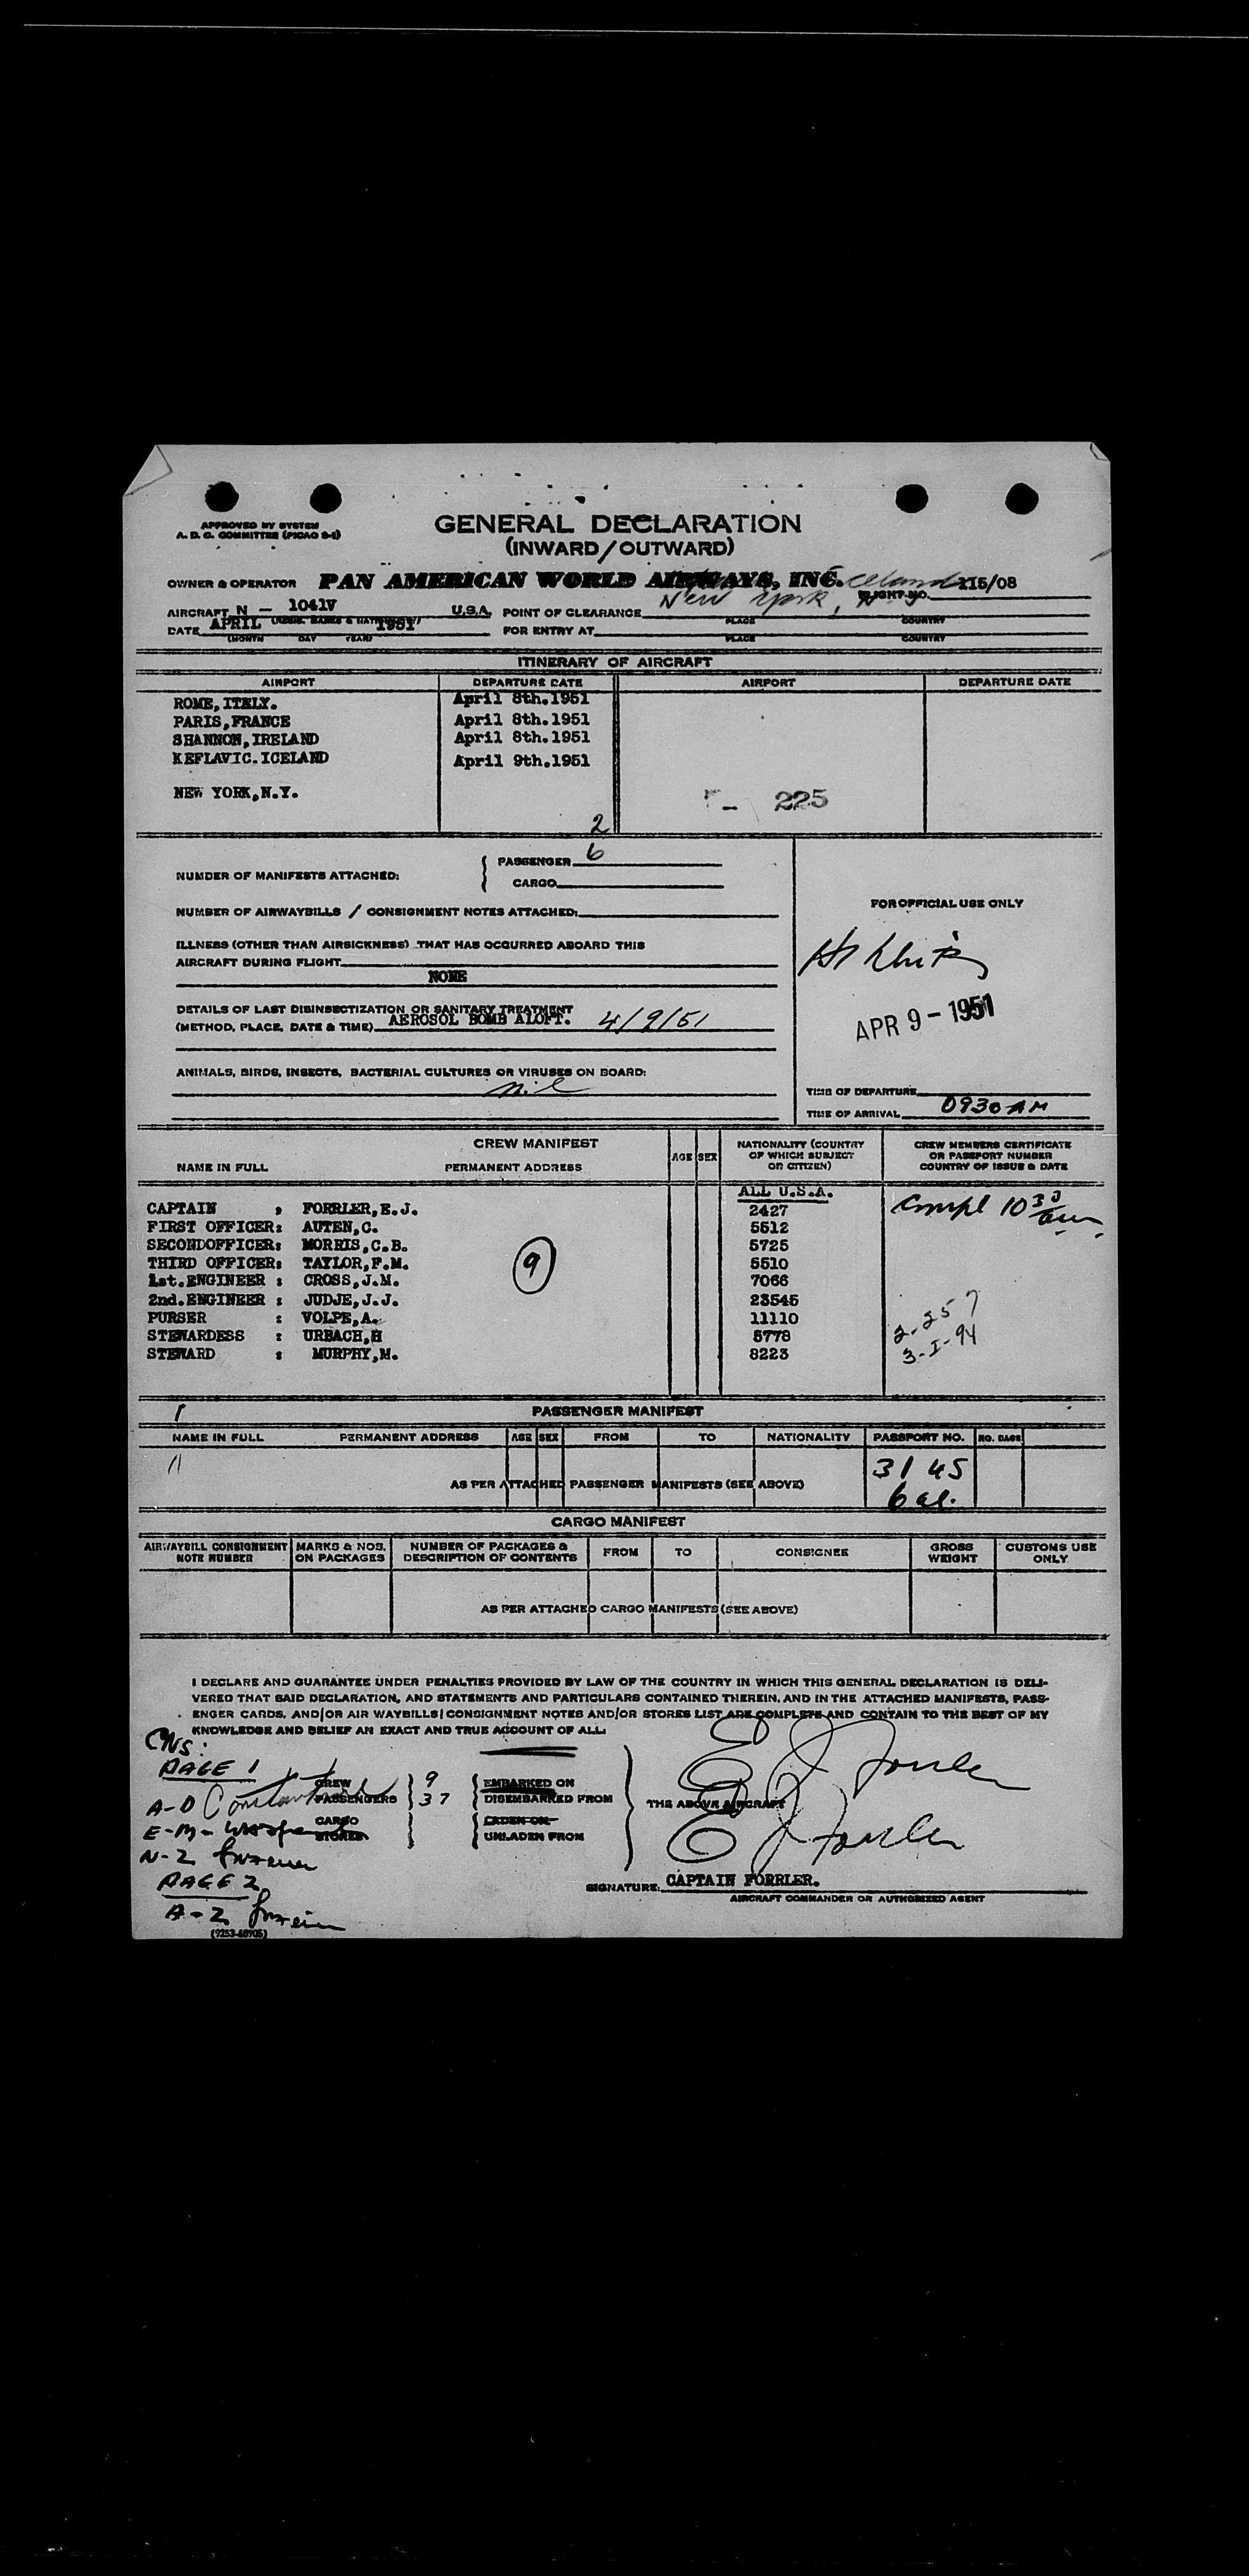 APPROVED BY SYSTEM
A. D. C. COMMITTEE (PICAO S-1)
GENERAL DECLARATION
(INWARD/OUTWARD)
OWNER & OPERATOR PAN AMERICAN WORLD AIRWAYS, INC. FLIGHT NO. 115/08
AIRCRAFT N - 1041V U.S.A. POINT OF CLEARANCE New York, N.Y.
PLACE COUNTRY
DATE APRIL 1951 FOR ENTRY AT
(MONTH DAY YEAR) PLACE COUNTRY
ITINERARY OF AIRCRAFT
AIRPORT DEPARTURE DATE AIRPORT DEPARTURE DATE
ROME, ITALY. April 8th.1951
PARIS, FRANCE April 8th.1951
SHANNON, IRELAND April 8th.1951
KEFLAVIC.ICELAND April 9th.1951
NEW YORK, N.Y. 225
2
NUMBER OF MANIFESTS ATTACHED: PASSENGER 6
CARGO
NUMBER OF AIRWAYBILLS / CONSIGNMENT NOTES ATTACHED:
FOR OFFICIAL USE ONLY
ILLNESS (OTHER THAN AIRSICKNESS) THAT HAS OCCURRED ABOARD THIS
AIRCRAFT DURING FLIGHT
NONE
DETAILS OF LAST DISINSECTIZATION OR SANITARY TREATMENT
(METHOD, PLACE, DATE & TIME) AEROSOL BOMB ALOFT. 4/9/51
APR 9 - 1951
ANIMALS, BIRDS, INSECTS, BACTERIAL CULTURES OR VIRUSES ON BOARD:
nil
TIME OF DEPARTURE
TIME OF ARRIVAL 0930 AM
CREW MANIFEST
NAME IN FULL PERMANENT ADDRESS AGE SEX NATIONALITY (COUNTRY OF WHICH SUBJECT OR CITIZEN) CREW MEMBERS CERTIFICATE OR PASSPORT NUMBER COUNTRY OF ISSUE & DATE
ALL U.S.A.
CAPTAIN , FORRLER, E.J. 2427 Compl 10 30 am
FIRST OFFICER: AUTEN, C. 5512
SECONDOFFICER: MORRIS, C.B. 5725
THIRD OFFICER: TAYLOR, F.M. 9 5510
1st. ENGINEER : CROSS, J.M. 7066
2nd. ENGINEER : JUDJE, J.J. 23545
PURSER : VOLPE, A. 11110 2-257
STEWARDESS : URBACH, H 5778
STEWARD : MURPHY, M. 8223 3-I-94
1 PASSENGER MANIFEST
NAME IN FULL PERMANENT ADDRESS AGE SEX FROM TO NATIONALITY PASSPORT NO. NO. BAGS
11 31 45
AS PER ATTACHED PASSENGER MANIFESTS (SEE ABOVE)
6 al.
CARGO MANIFEST
AIRWAYBILL CONSIGNMENT NOTE NUMBER MARKS & NOS. ON PACKAGES NUMBER OF PACKAGES & DESCRIPTION OF CONTENTS FROM TO CONSIGNEE GROSS WEIGHT CUSTOMS USE ONLY
AS PER ATTACHED CARGO MANIFESTS (SEE ABOVE)
I DECLARE AND GUARANTEE UNDER PENALTIES PROVIDED BY LAW OF THE COUNTRY IN WHICH THIS GENERAL DECLARATION IS DELI-
VERED THAT SAID DECLARATION, AND STATEMENTS AND PARTICULARS CONTAINED THEREIN, AND IN THE ATTACHED MANIFESTS, PASS-
ENGER CARDS, AND/OR AIR WAYBILLS/CONSIGNMENT NOTES AND/OR STORES LIST ARE COMPLETE AND CONTAIN TO THE BEST OF MY
KNOWLEDGE AND BELIEF AN EXACT AND TRUE ACCOUNT OF ALL:
PAGE 1
CREW 9 EMBARKED ON
A-D PASSENGERS 37 DISEMBARKED FROM THE ABOVE AIRCRAFT
CARGO LADEN ON
E-M STORES UNLADEN FROM
N-Z
PAGE 2
SIGNATURE: CAPTAIN FORRLER.
AIRCRAFT COMMANDER OR AUTHORIZED AGENT
A-Z